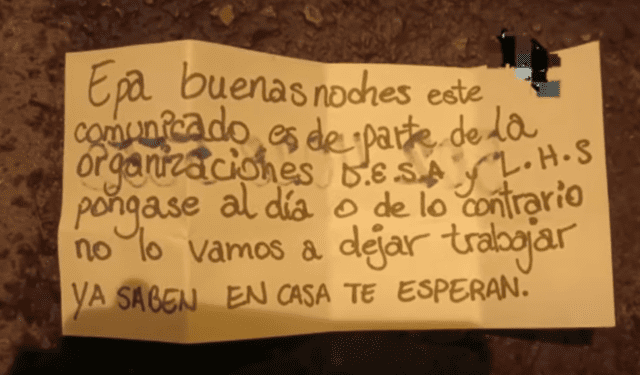 Epa buenas noches este
comunicado es de parte de la
organizaciones D.E.S.A y L.H.S
pongase al día o de lo contrario
no lo vamos a dejar trabajar
YA SABEN EN CASA TE ESPERAN.